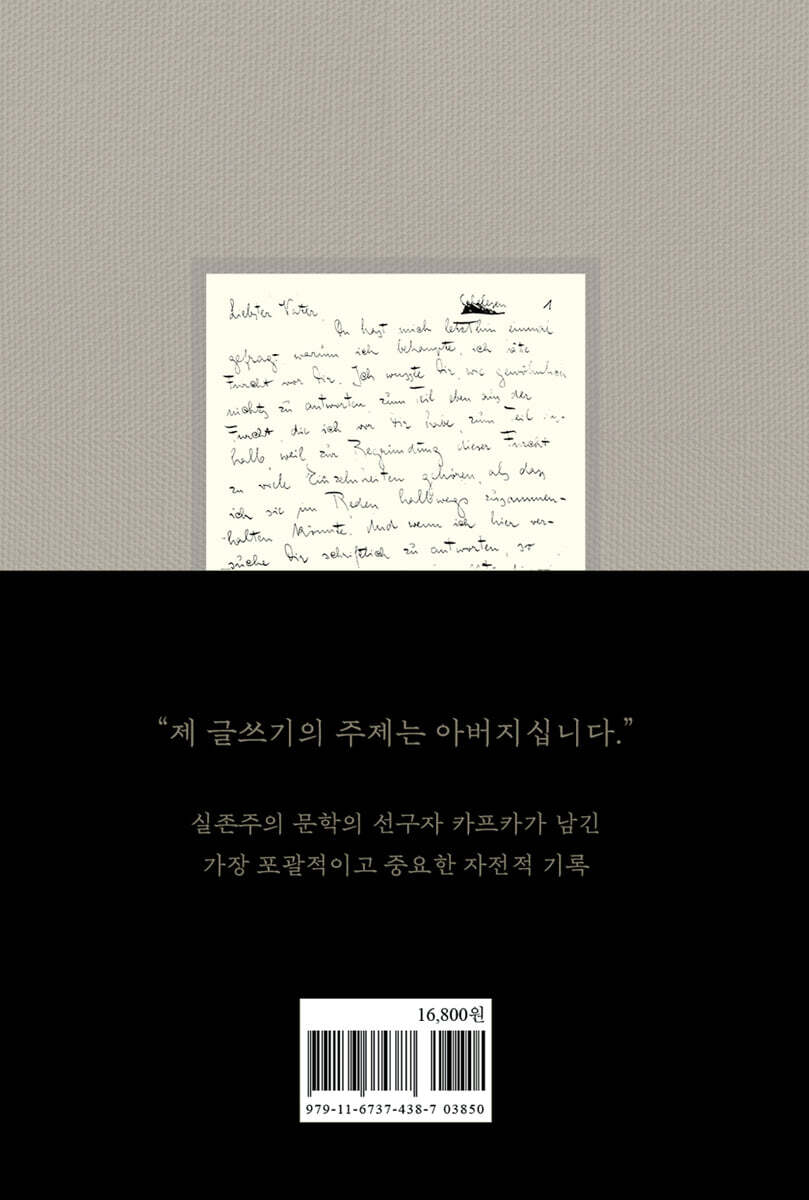 Liebster Vater, 1
Du hast mich letzthin einmal
gefragt, warum ich behaupte, ich hätte
Furcht vor Dir. Ich wusste Dir, wie gewöhnlich
nichts zu antworten, zum Teil eben aus der
Furcht, die ich vor Dir habe, zum Teil
halb, weil zur Begründung dieser Furcht
zu viele Einzelheiten gehören, als dass
ich sie im Reden halbwegs zusammen-
halten könnte. Und wenn ich hier ver-
suche Dir schriftlich zu antworten, so
“제 글쓰기의 주제는 아버지십니다.”
실존주의 문학의 선구자 카프카가 남긴
가장 포괄적이고 중요한 자전적 기록
16,800원
979-11-6737-438-7 03850